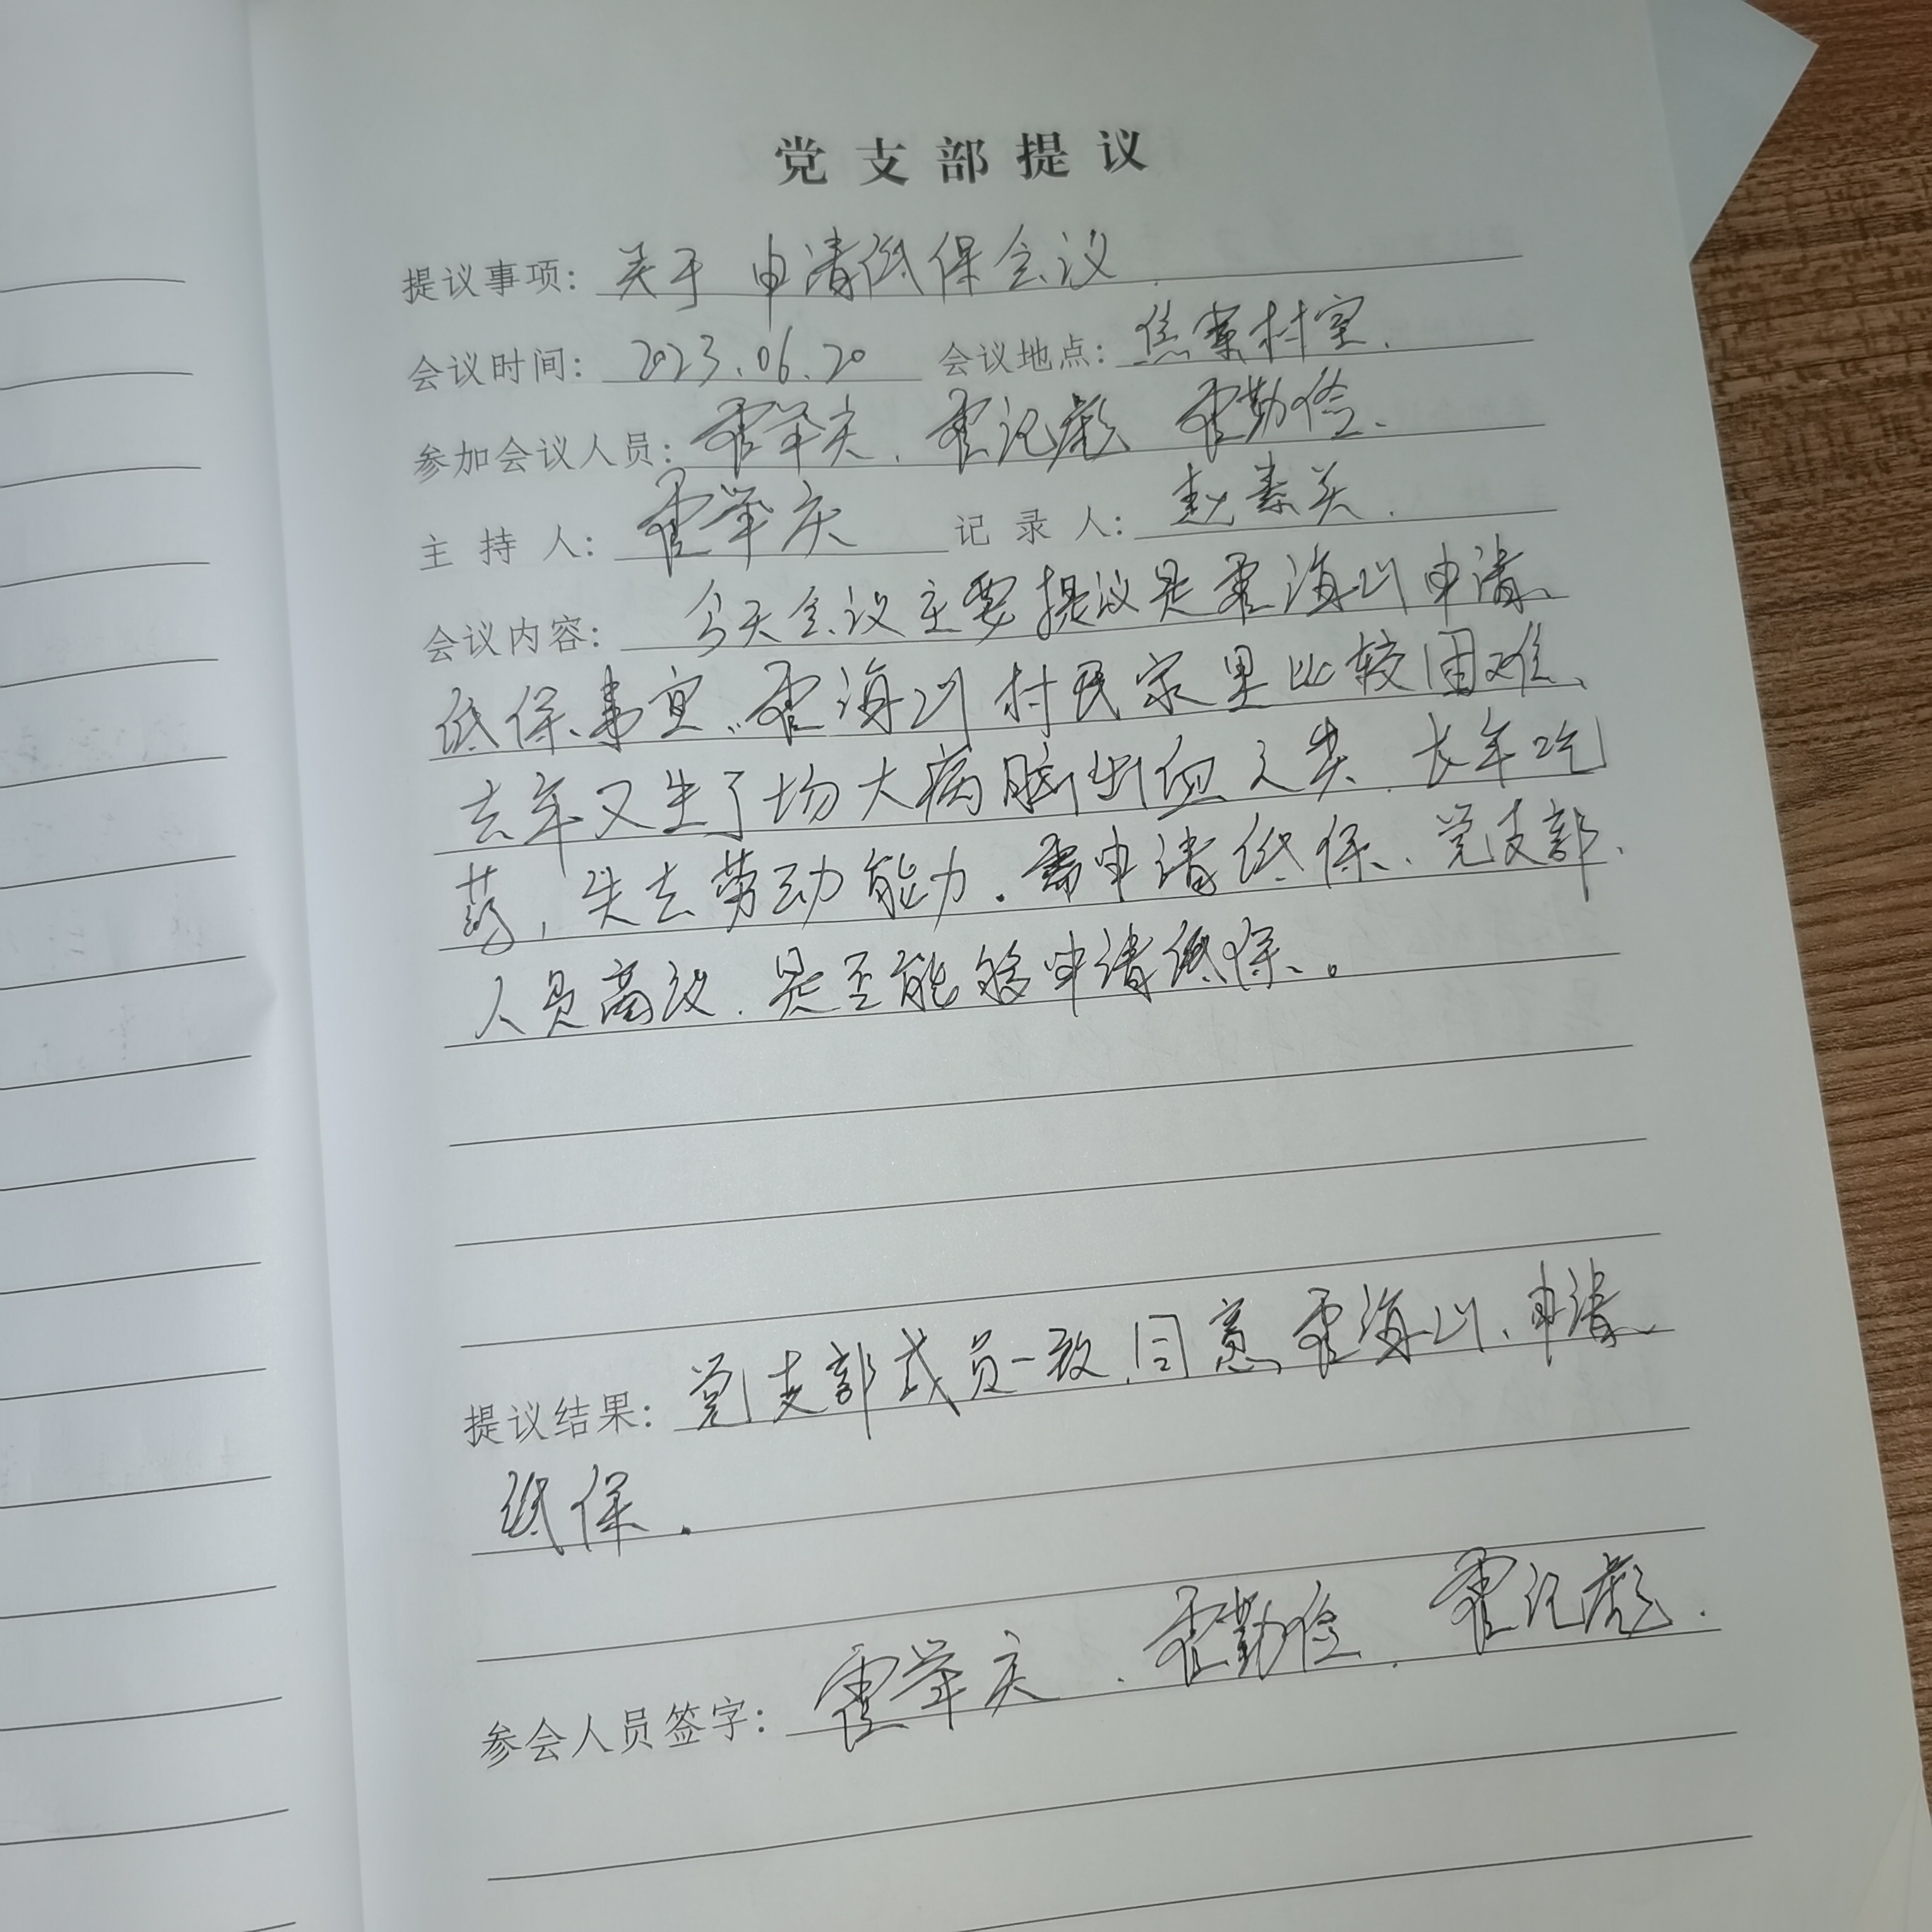 党支部提议
提议事项: 关于申请低保会议.
会议时间: 2023.06.20 会议地点: 焦寨村室.
参加会议人员: 霍举庆. 霍记彪 霍勤俭.
主持人: 霍举庆 记录人: 赵素英.
会议内容: 今天会议主要提议是霍海川申请
低保事宜、霍海川村民家里比较困难、
去年又生了场大病脑出血之类. 长年吃
药, 失去劳动能力. 需申请低保、党支部
人员商议. 是否能够申请低保。
提议结果: 党支部成员一致同意霍海川、申请
低保.
参会人员签字: 霍举庆. 霍勤俭. 霍记彪.